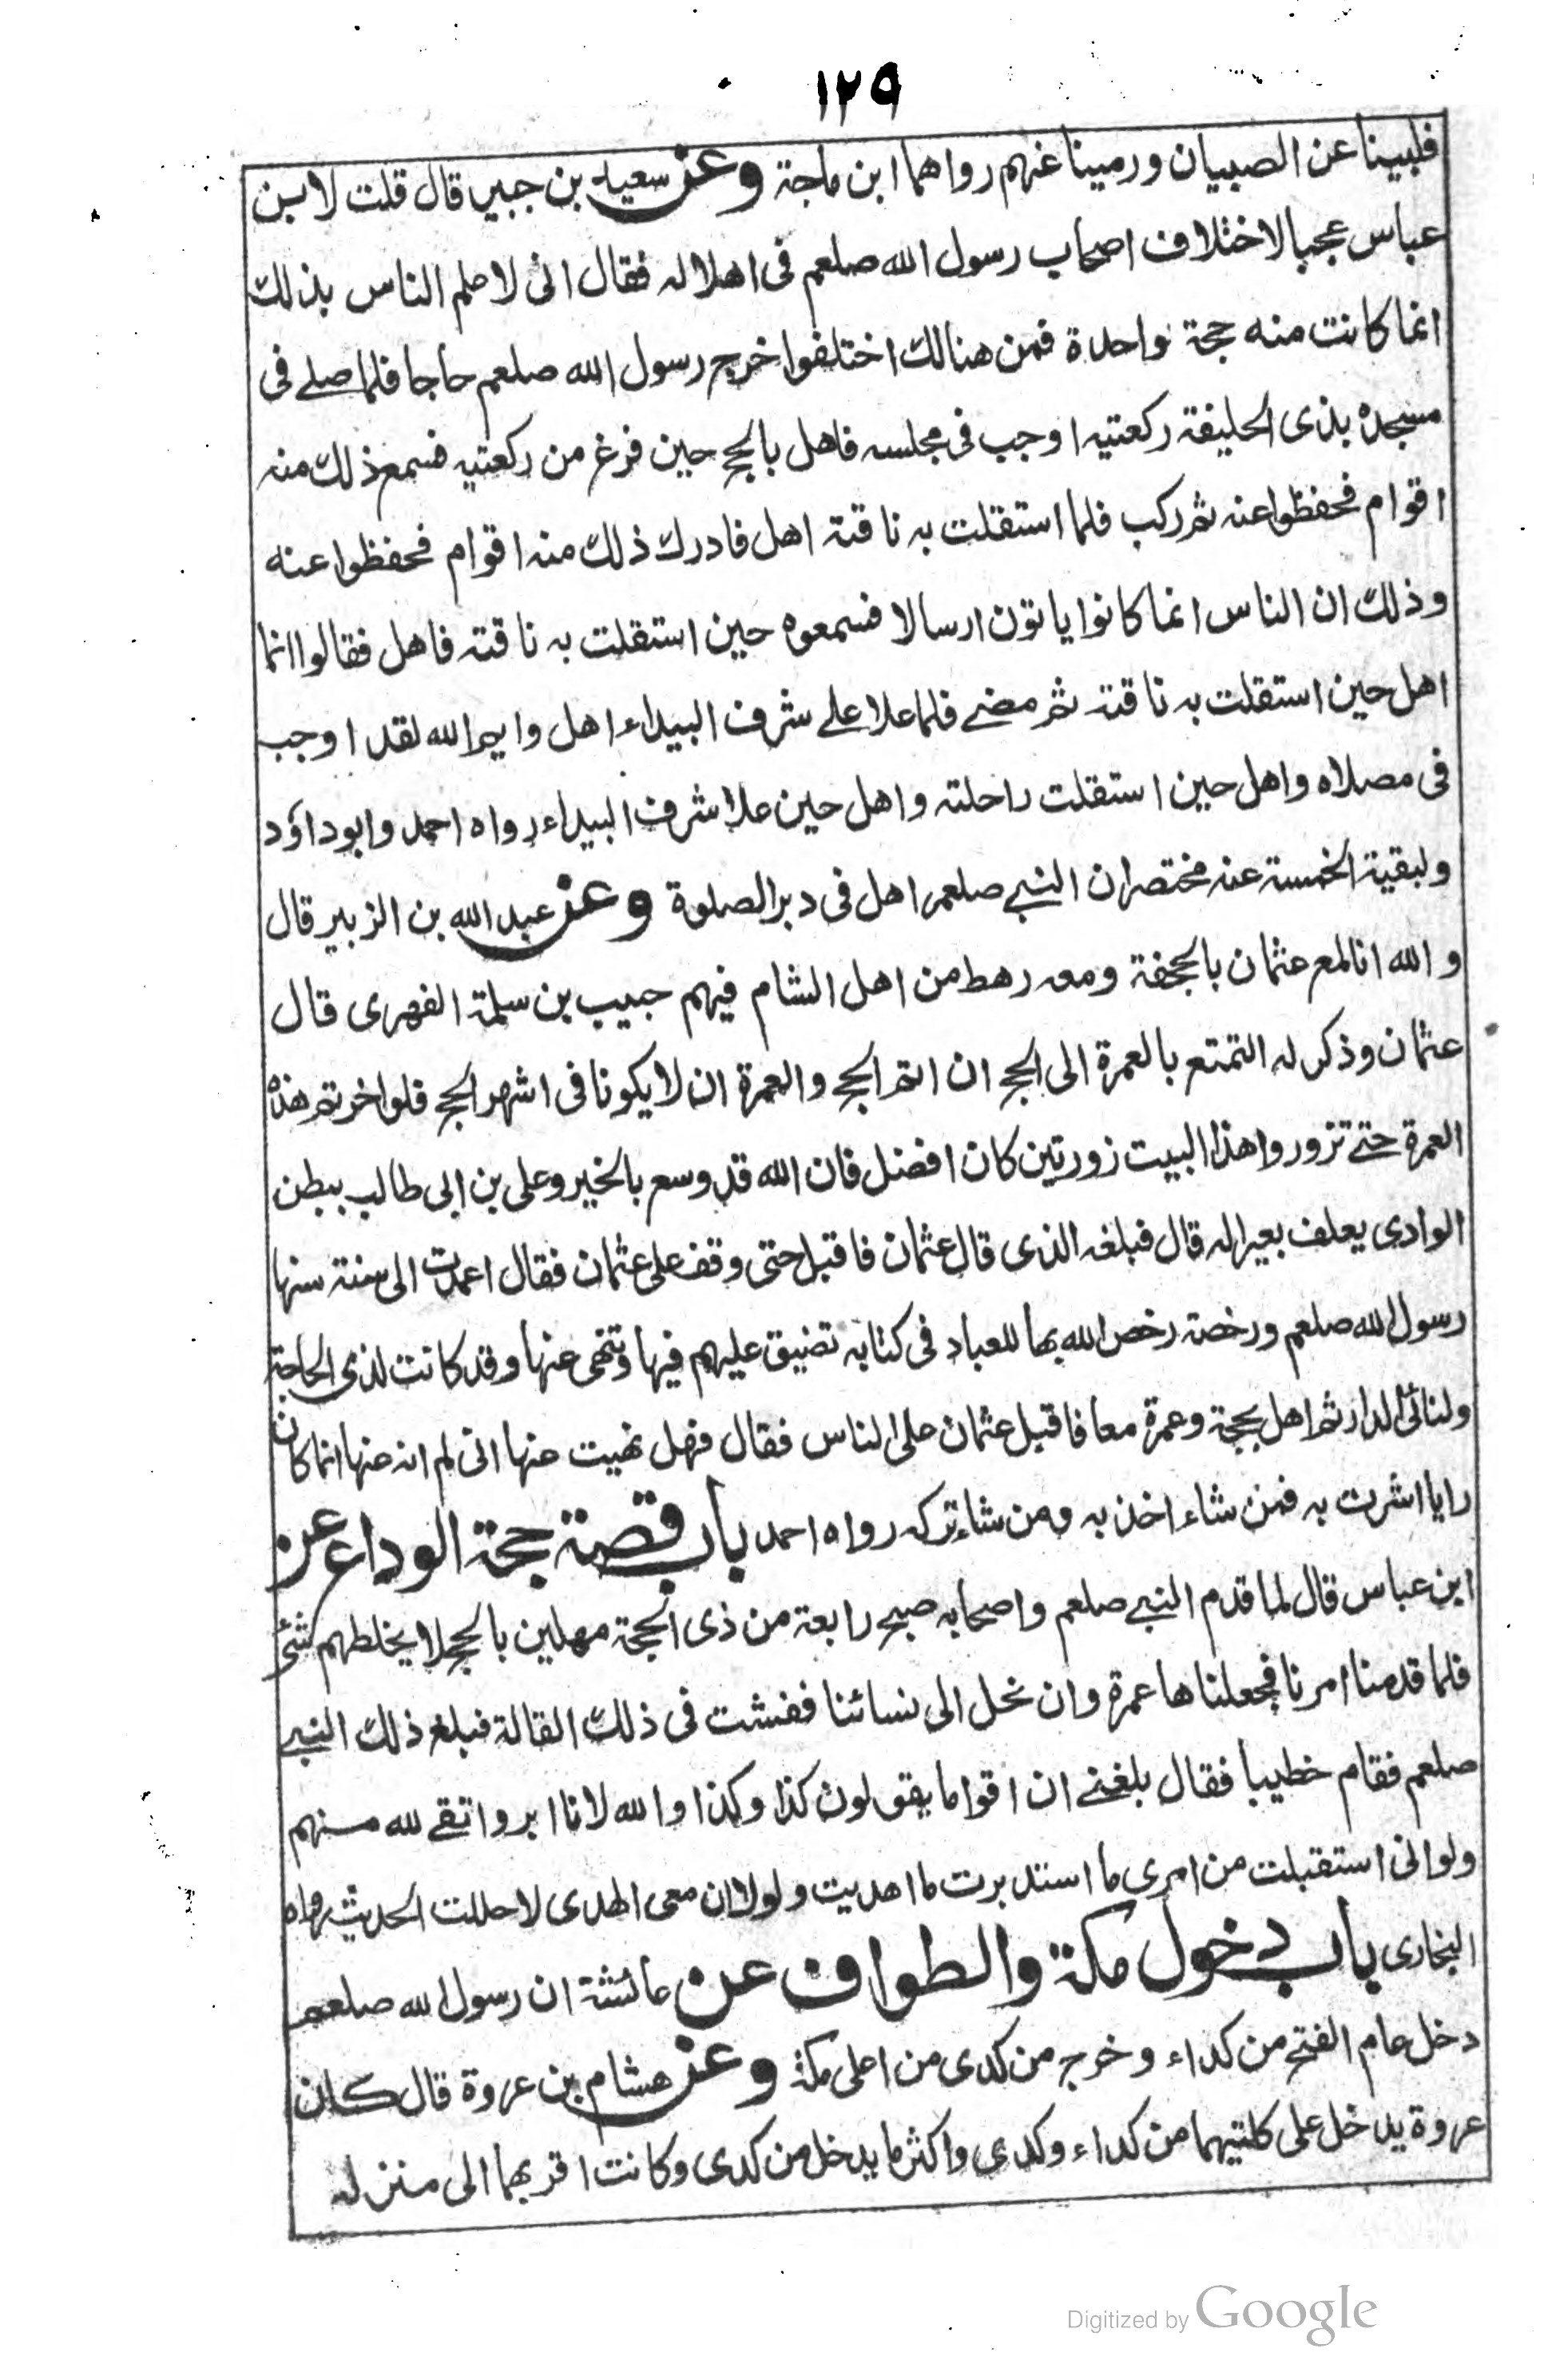 ١٢٩
فلبينا عن الصبيان ورمينا عنهم رواهما ابن ماجة وعن سعيد بن جبير قال قلت لابن
عباس عجبا لاختلاف اصحاب رسول الله صلعم فى اهلاله فقال انى لاعلم الناس بذلك
انما كانت منه حجة واحدة فمن هنالك اختلفوا خرج رسول الله صلعم حاجا فلما صلے فى
مسجده بذى الحليفة ركعتيه اوجب فى مجلسه فاهل بالحج حين فرغ من ركعتيه فسمع ذلك منه
اقوام فحفظوا عنه ثم ركب فلما استقلت به ناقتة اهل فادرك ذلك منه اقوام فحفظوا عنه
وذلك ان الناس انما كانوا ياتون ارسالا فسمعوه حين استقلت به ناقته فاهل فقالوا انما
اهل حين استقلت به ناقتة ثم مضے فلما علا علے شرف البيداء اهل وايم الله لقد اوجب
فى مصلاه واهل حين استقلت راحلته واهل حين علا شرف البيداء رواه احمد وابو داؤد
ولبقية الخمسة عنه مختصر ان النبے صلعم اهل فى دبر الصلوة وعن عبد الله بن الزبير قال
و الله انا لمع عثمان بالجحفة ومعه رهط من اهل الشام فيهم حبيب بن سلمة الفهرى قال
عثمان وذكر له التمتع بالعمرة الى الحج ان اتم الحج والعمرة ان لا يكونا فى اشهر الحج فلو اخرتم هذه
العمرة حتے تزوروا هذا البيت زورتين كان افضل فان الله قد وسع بالخير وعلى بن ابى طالب ببطن
الوادى يعلف بعيرا له قال فبلغه الذى قال عثمان فاقبل حتى وقف على عثمان فقال اعمدت الى سنة سنها
رسول الله صلعم ورخصة رخص الله بها للعباد فى كتابه تضيق عليهم فيها وتنهى عنها وقد كانت لذى الحاجة
ولنائى الدار ثم اهل بحجة وعمرة معا فاقبل عثمان على الناس فقال فهل نهيت عنها انى لم انه عنها انما كان
رايا اشرت به فمن شاء اخذ به ومن شاء تركه رواه احمد باب قصة حجة الوداع عن
ابن عباس قال لما قدم النبے صلعم واصحابه صبح رابعة من ذى الحجة مهلين بالحج لا يخلطهم شئ
فلما قدمنا امرنا فجعلناها عمرة وان نحل الى نسائنا ففشت فى ذلك القالة فبلغ ذلك النبے
صلعم فقام خطيبا فقال بلغنے ان اقواما يقولون كذا وكذا والله لانا ابر واتقے لله منهم
ولو انى استقبلت من امرى ما استدبرت ما اهديت ولولا ان معى الهدى لاحللت الحديث رواه
البخارى باب دخول مكة والطواف عن عائشة ان رسول الله صلعم
دخل عام الفتح من كداء وخرج من كدى من اعلى مكة وعن هشام بن عروة قال كان
عروة يدخل على كلتيهما من كداء وكدى واكثر ما يدخل من كدى وكانت اقربهما الى منزله
Digitized by Google